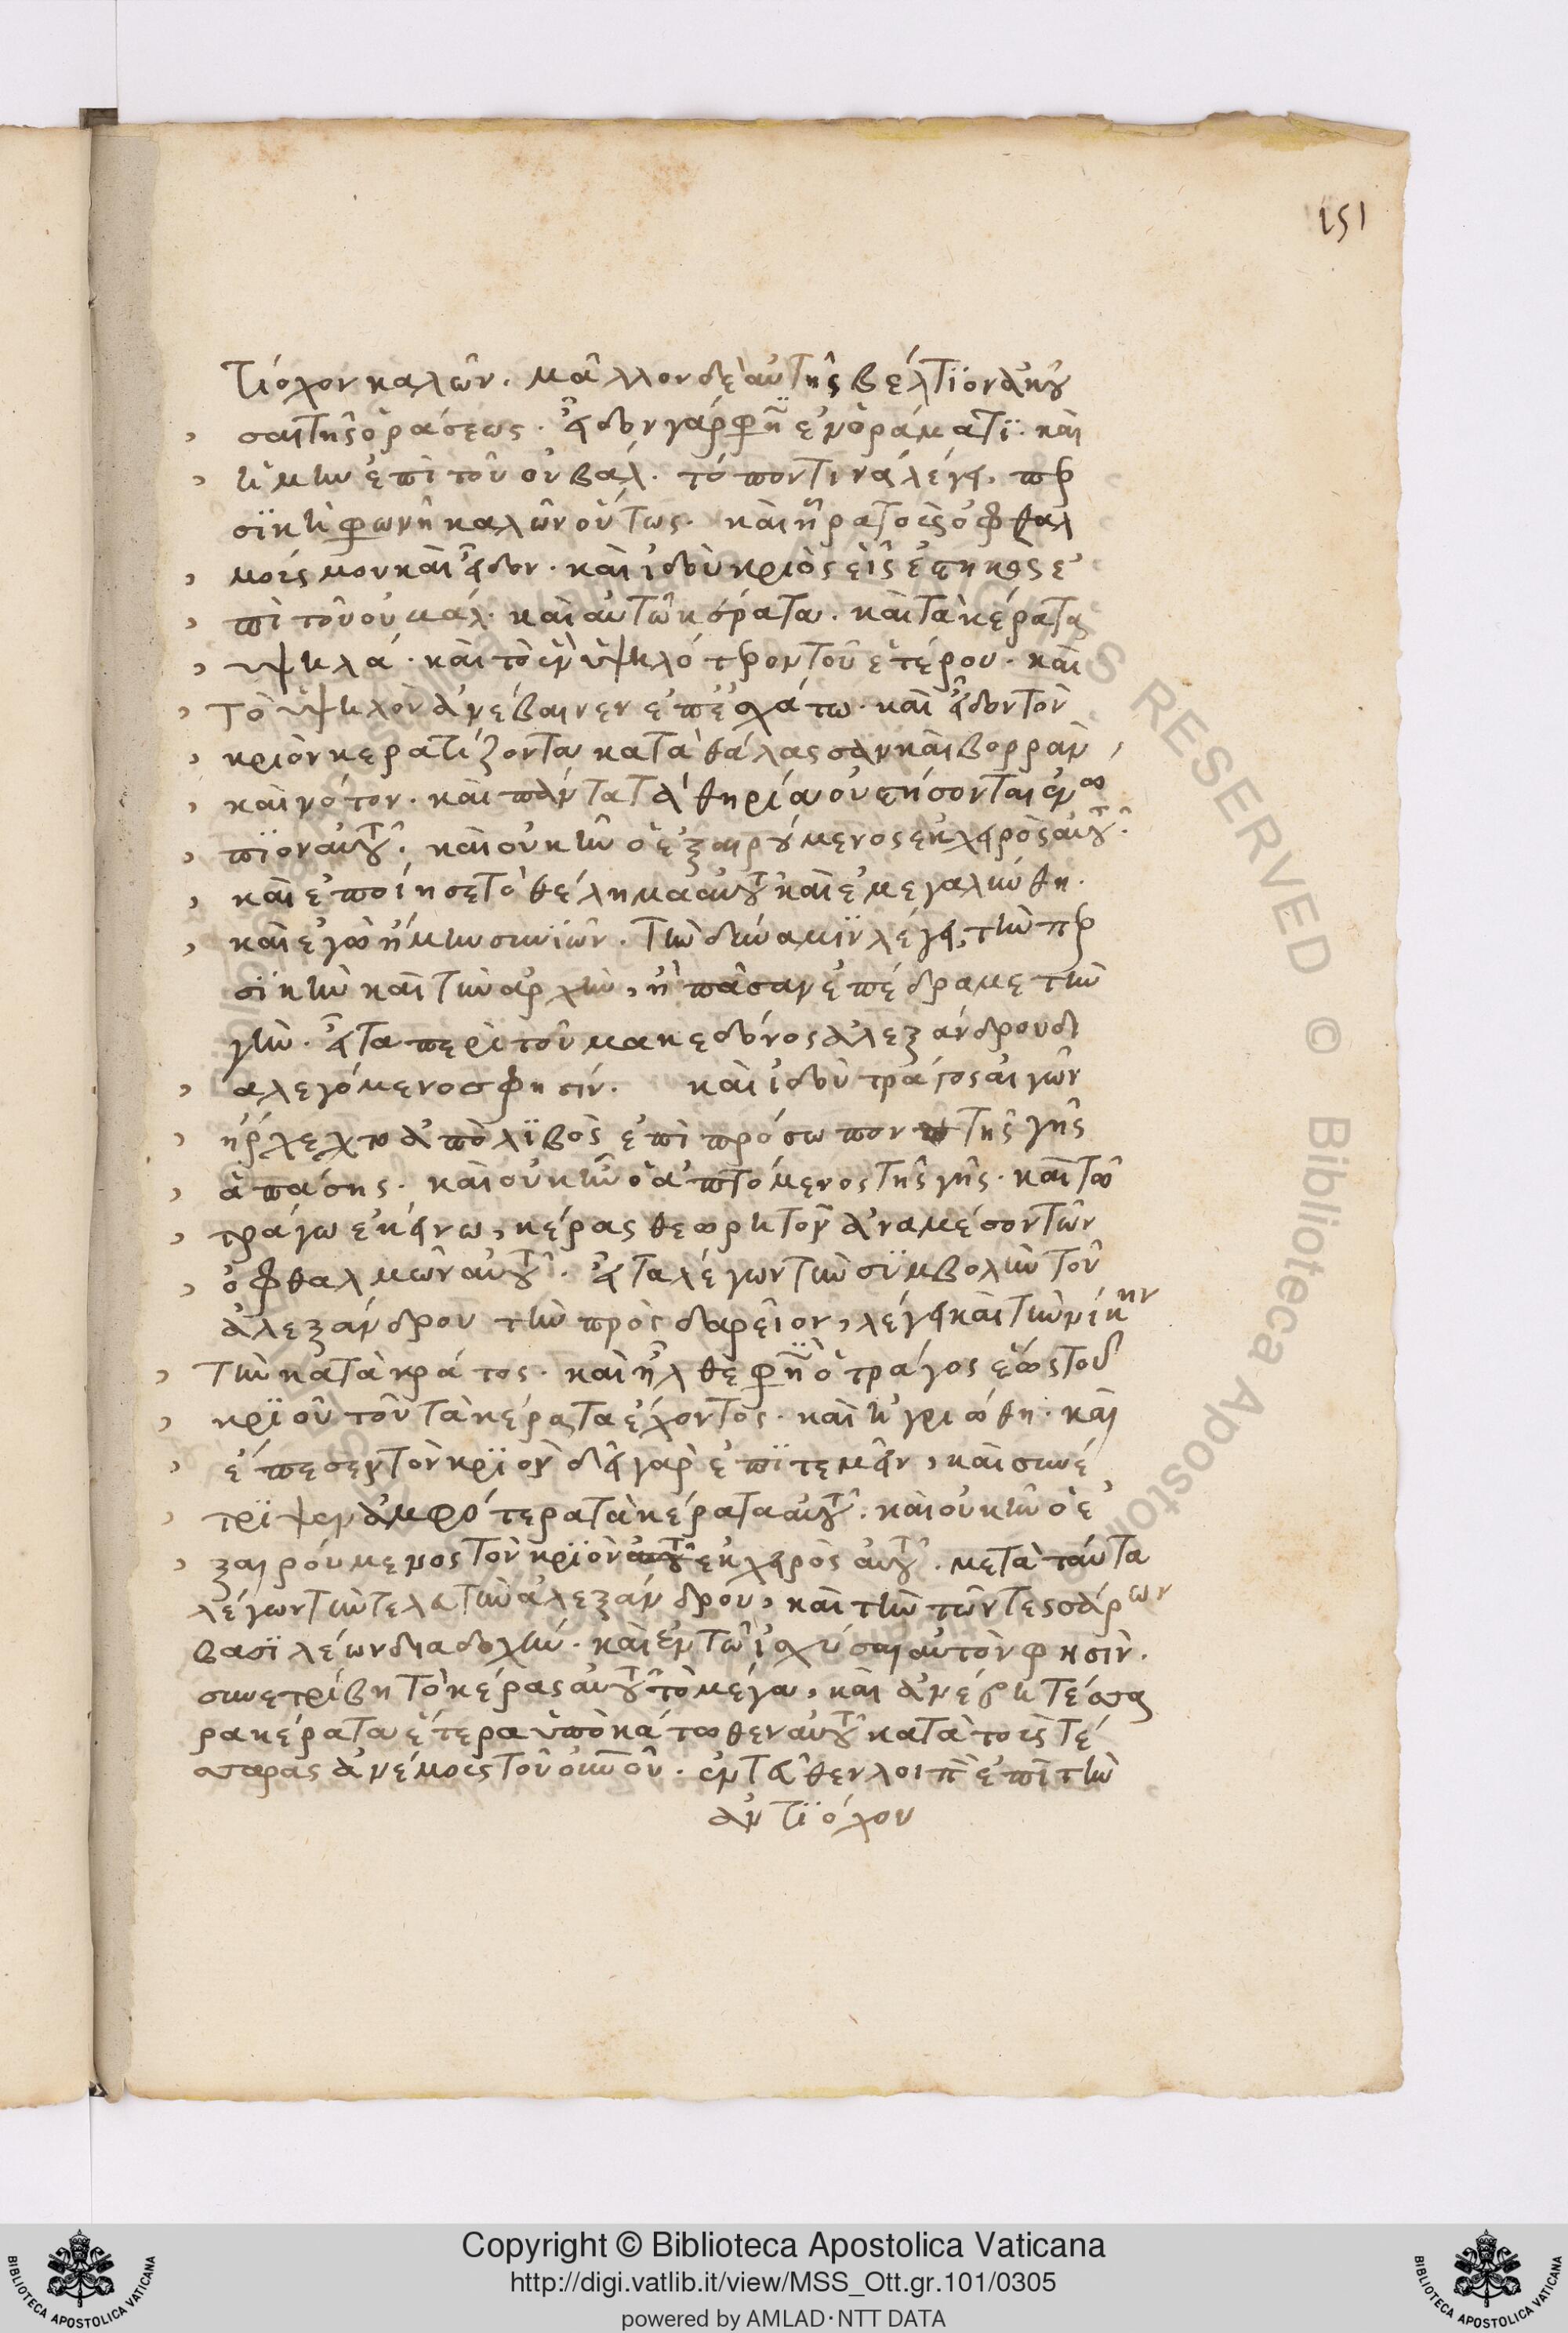 151
τίοχον καλῶν. μᾶλλον δὲ αὐτῆς βέλτϊον ἀκοῦ
σαι τῆς ὁράσεως. εἶδον γάρ φη ἐν ὁράματϊ. καὶ
ἤμην ἐπὶ τοῦ οὐβάλ. τόπον τινὰ λέγει. περ
σϊκῆ φωνῇ καλῶν οὕτως. καὶ ἦρα τοῖς ὀφθαλ
μοῖς μου καὶ εἶδον. καὶ ἰδοὺ κριὸς εἷς ἑστηκὼς ἐ
πὶ τοῦ οὐμάλ. καὶ αὐτῶ κέρατα. καὶ τὰ κέρατα
ὑψηλά. καὶ τὸ ἓν ὑψηλότερον τοῦ ἑτέρου. καὶ
τὸ ὑψηλὸν ἀνέβαινεν ἐπ' ἐσχάτω. καὶ εἶδον τὸν
κριὸν κερατίζοντα κατὰ θάλασσαν καὶ βορρᾶν,
καὶ νότον. καὶ πάντα τὰ θηρία οὐ στήσονται ἐνω
πϊον αὐτοῦ. καὶ οὐκ ἦν ὁ ἐξαιρούμενος ἐκ χειρὸς αὐτοῦ.
καὶ ἐποίησε τὸ θέλημα αὐτοῦ καὶ ἐμεγαλύνθη.
καὶ ἐγὼ ἤμην συνϊών. τὴν δύναμϊν λέγει, τὴν περ
σϊκὴν καὶ τὴν ἀρχὴν, ἣ πᾶσαν ἐπέδραμε τὴν
γῆν. εἶτα περὶ τοῦ μακεδόνος ἀλεξάνδρου δι
αλεγόμενος φησίν. καὶ ἰδοὺ τράγος αἰγῶν
ἤρχετο ἀπὸ λϊβὸς ἐπὶ πρόσωπον τῆς γῆς
ἁπάσης. καὶ οὐκ ἦν ὁ ἁπτόμενος τῆς γῆς. καὶ τῶ
τράγω ἐκείνω, κέρας θεωρητὸν ἀναμέσον τῶν
ὀφθαλμῶν αὐτοῦ. εἶτα λέγων τὴν σϋμβολὴν τοῦ
ἀλεξάνδρου τὴν πρὸς δαρεῖον, λέγει καὶ τὴν νίκην
τὴν κατὰ κράτος. καὶ ἦλθε φη ὁ τράγος ἕως τοῦ
κρϊοῦ τοῦ τὰ κέρατα ἔχοντος. καὶ ἠγριώθη. καὶ
ἔπεσεν τὸν κρϊὸν δεῖ γὰρ ἐπϊτεμεῖν, καὶ συνέ
τρϊψεν ἀμφότερα τὰ κέρατα αὐτοῦ. καὶ οὐκ ἦν ὁ ἐ
ξαιρούμενος τὸν κρϊὸν αὐτοῦ ἐκ χειρὸς αὐτοῦ. μετὰ ταῦτα
λέγων τὴν τελετὴν ἀλεξάνδρου, καὶ τὴν τῶν τεσσάρων
βασϊλέων διαδοχὴν. καὶ ἐν τῶ ἰσχύσαι αὐτὸν φησὶν.
συνετρίβη τὸ κέρας αὐτοῦ τὸ μέγα, καὶ ἀνέβη τέσσα
ρα κέρατα ἕτερα ὑποκάτωθεν αὐτοῦ κατὰ τοὶς τέ
σσαρας ἀνέμοις τοῦ οὐνοῦ. ἐντεῦθεν λοιπ ἐπὶ τὴν
ἀντϊόχου
RIGHTS RESERVED © Biblioteca Apostolica Vaticana
Copyright © Biblioteca Apostolica Vaticana
http://digi.vatlib.it/view/MSS_Ott.gr.101/0305
powered by AMLAD·NTT DATA
BIBLIOTECA APOSTOLICA VATICANA
BIBLIOTECA APOSTOLICA VATICANA